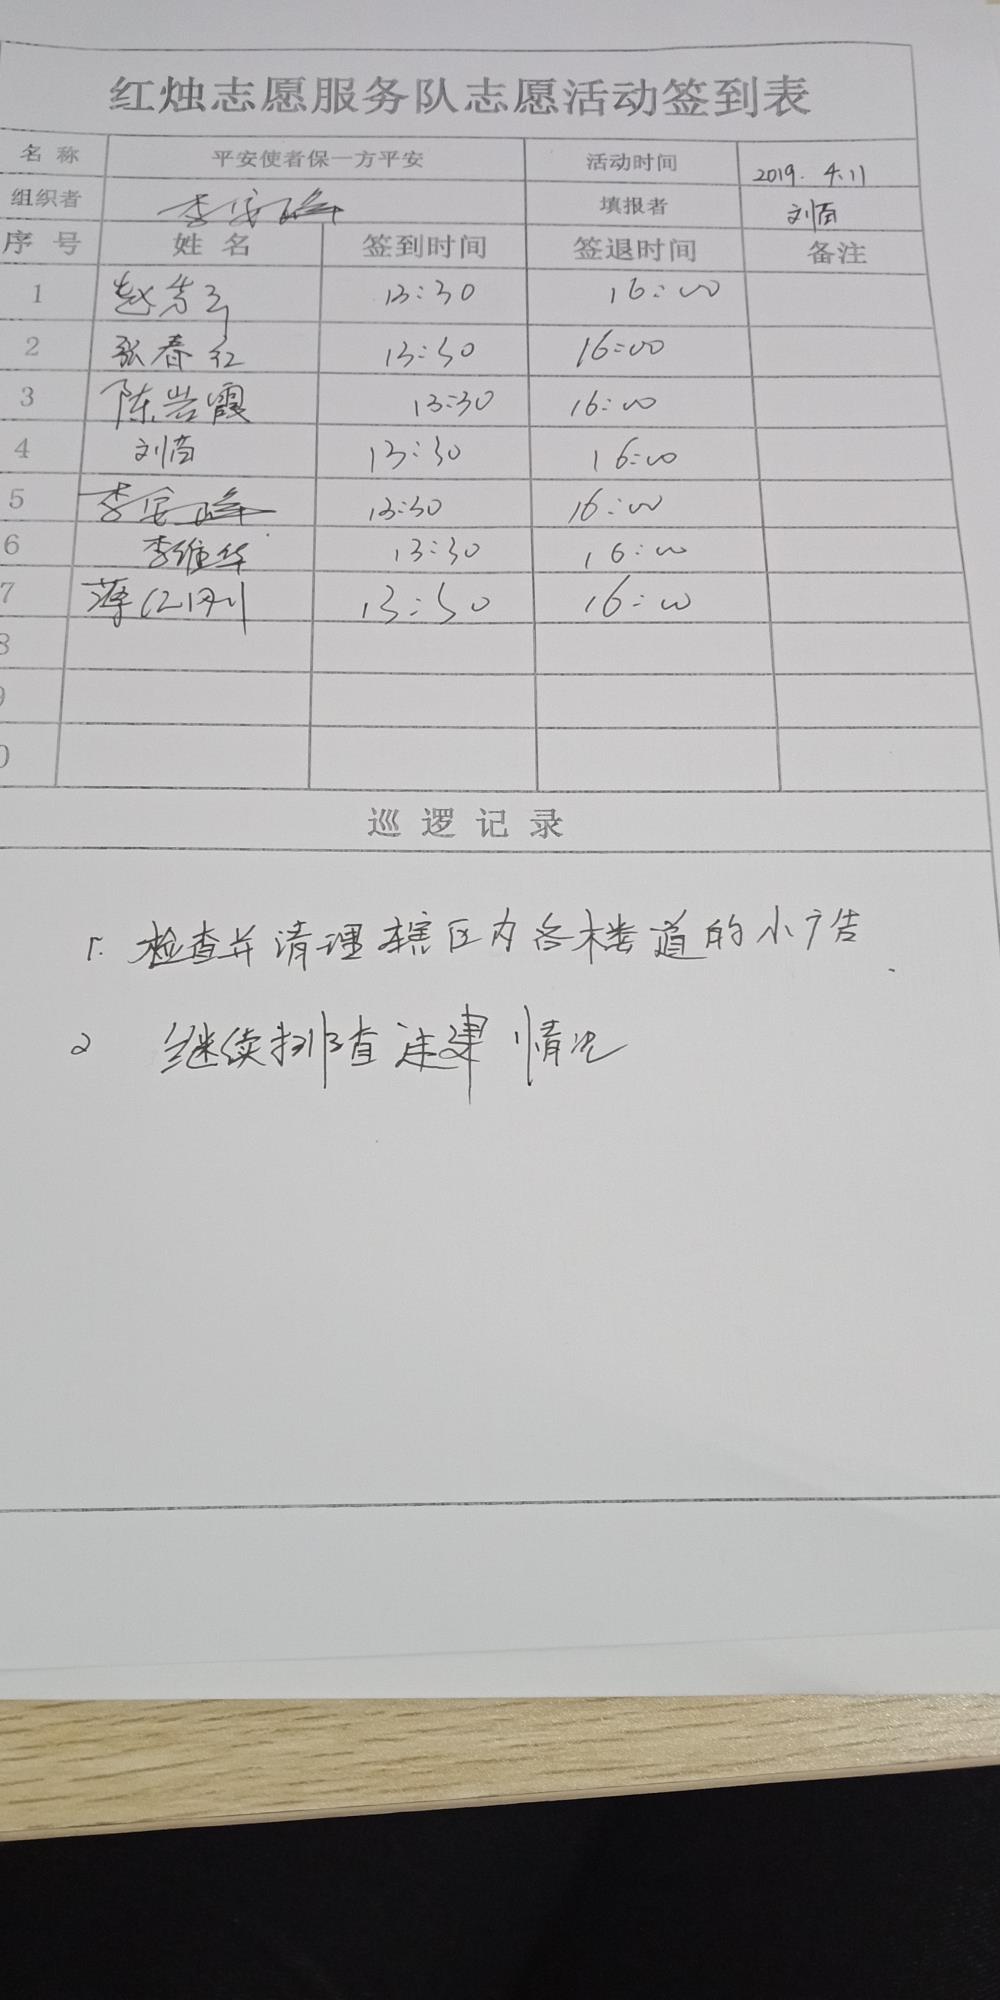 红烛志愿服务队志愿活动签到表
名 称 平安使者保一方平安 活动时间 2019. 4.11
组织者 李安峰 填报者 刘茵
序 号 姓 名 签到时间 签退时间 备注
1 赵 13:30 16:00
2 张春红 13:30 16:00
3 陈岩霞 13:30 16:00
4 刘茵 13:30 16:00
5 李安峰 13:30 16:00
6 李维华 13:30 16:00
7 薄红刚 13:30 16:00
8
9
0
巡 逻 记 录
1. 检查并清理辖区内各楼道的小广告.
2 继续排查违建情况